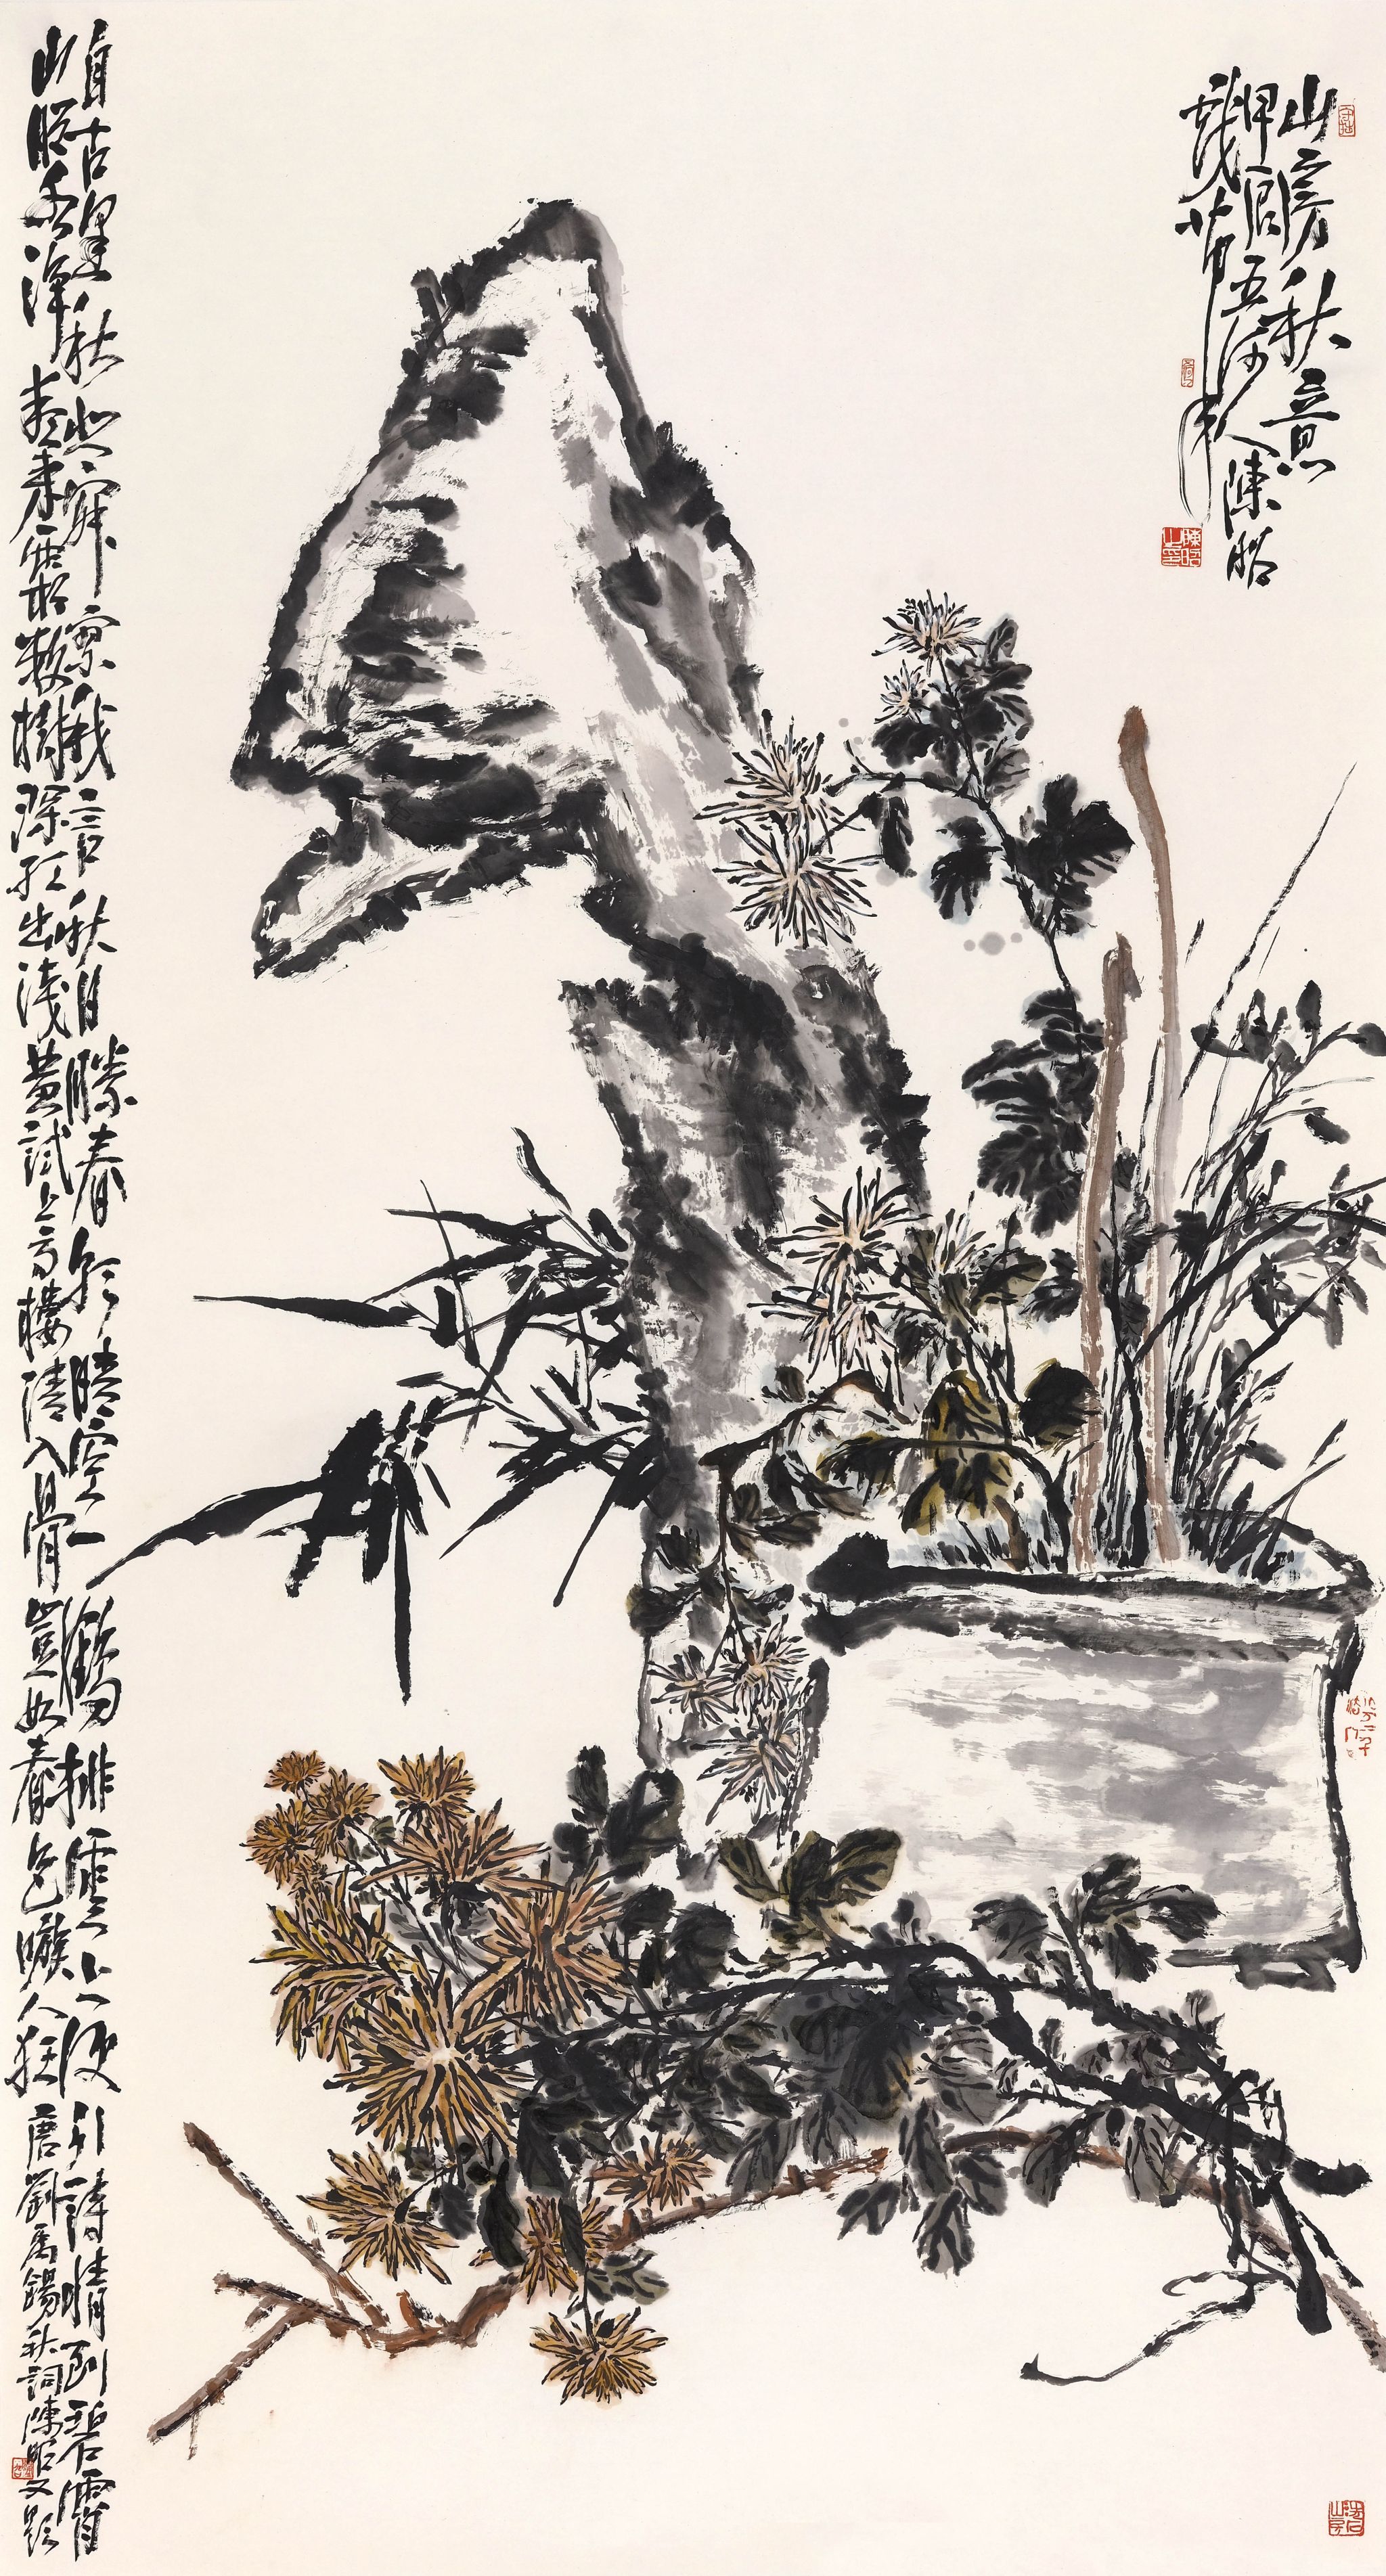 山房秋意
甲辰五河人陳
自古逢秋悲寂寥我言秋日勝春朝晴空一鶴排雲上便引詩情到碧霄
山明水淨夜來霜數樹深紅出淺黃試上高樓清入骨豈如春色嗾人狂唐劉禹錫秋詞陳又題